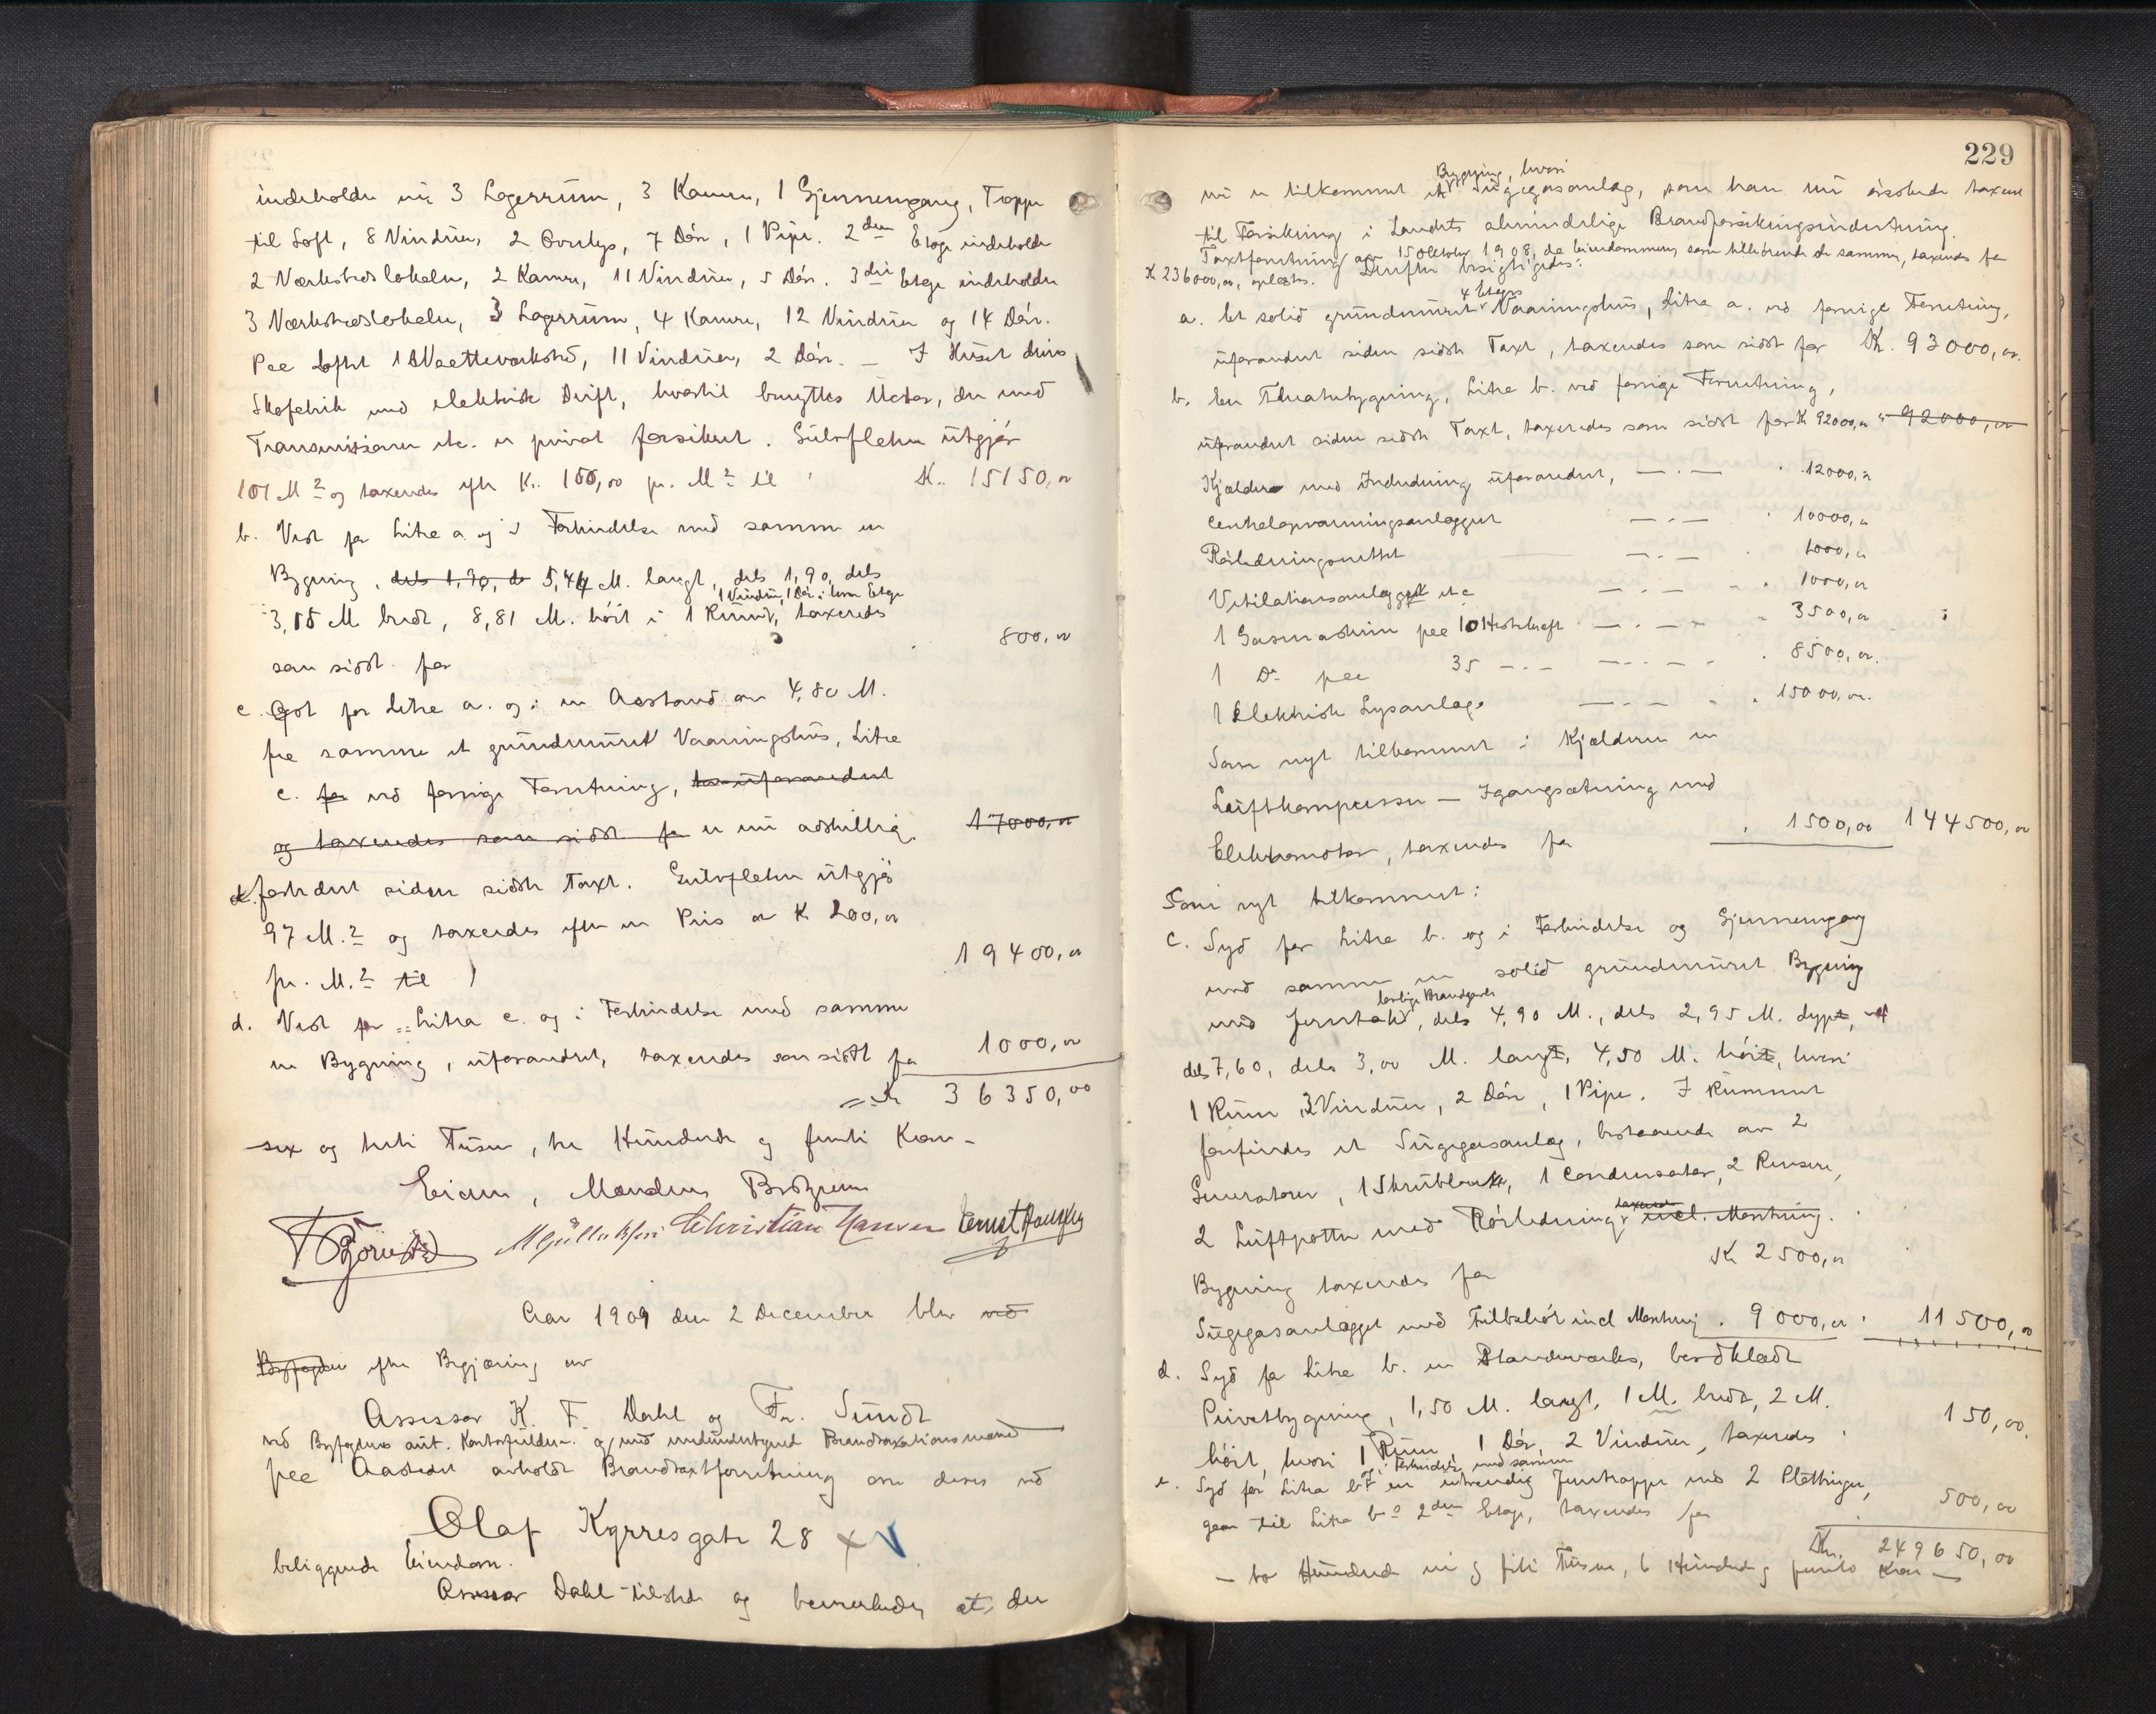 indeholder nu 3 Lagerrum, 3 Kamre, 1 Gjennemgang, Trappe
til Loft, 8 Vinduer, 2 Overlys, 7 Döre, 1 Pipe. 2den Etage indeholder
2 Værkstedslokaler, 2 Kamre, 11 Vinduer, 5 Döre. 3die Etage indeholder
3 Værkstedslokaler, 3 Lagerrum, 4 Kamre, 12 Vinduer og 14 Döre.
Paa Loftet 1 Værksted, 11 Vinduer, 2 Döre. — I Huset drives
Skofabrik med elektrisk Drift, hvortil benyttes Motor, der med
Transmissioner etc. er privat forsikret. Gulvflaten utgjör
101 M2 og taxeredes efter Kr. 150,00 pr. M2 til Kr. 15150,00
b. Vest for Litra a og i Forbindelse med samme en
Bygning, dels 1,90, de 5,44 M. langt, dels 1,90, dels
1 Vindu, 1 Dör i hver Etage
3,15 M bredt, 8,81 M. höit i 1 Rum, taxeredes
som sidst for 800,00
c. Öst for Litra a. og i en Avstand av 4,80 M.
fra samme et grundmuret Vaaningshus, Litra
c. ved forrige Forretning, uforandret
og taxeredes som sidst for er nu adskillig 17000,00
forbedret siden sidste Taxt. Gulvflaten utgjör
97 M.2 og taxeredes efter en Pris av Kr 200,00
pr. M.2 til 19400,00
d. Vest for Litra c. og i Forbindelse med samme
en Bygning, uforandret, taxeredes som sidst for 1000,00
Kr 36350,00
sex og treti Tusen, tre Hundrede og femti Kroner
Eieren, Mandrup
Christian Hansen Ernst
Aar 1909 den 2 December blev ved
Byfogden efter Begjæring av
Assessor K. F. Dahl og Fr. Sundt
ved Byfogdens aut. Kontorfuldm. og med undertegnede Brandtaxationsmænd
paa Aastedet avholdt Brandtaxtforretning over deres ved
Olaf Kyrresgate 28 x V
beliggende Eiendom.
Assessor Dahl tilstede og bemerkede, at der
229
Bygning, hvori
nu er tilkommet et Sugegasanlæg, som han nu önskede taxeret
til Forsikring i Landets almindelige Brandforsikringsindretning.
Taxtforretning av 15 Oktober 1908, da Eiendommen som tilhörende de samme, taxeredes for
K 236000,00, oplæstes. Derefter besigtigedes:
4 Etages
a. Et solid grundmuret Vaaningshus, Litra a. ved forrige Forretning,
uforandret siden sidste Taxt, taxeredes som sidst for Kr. 93000,00.
b. En Theaterbygning, Litra b. ved forrige Forretning,
uforandret siden sidste Taxt, taxeredes som sidst for K 92000,00 92000,00
Kjælder med Indredning uforandret, — . — 12000,00
Centralopvarmingsanlægget — . — 10000,00
Rörledningsnettet — . — 1000,00
Ventilationsanlægget etc — . — 1000,00
1 Gasmaskin paa 10 Hestekraft — . — 3500,00
1 Do paa 35 — . — — . — 8500,00.
1 Elektrisk Lysanlæg — . — 15000,00.
Som nyt tilkommet i Kjælderen en
Luftkompressor — Igangsætning med
Elektromotor, taxeredes for 1500,00 144500,00
Som nyt tilkommet:
c. Syd for Litra b. og i Forbindelse og Gjennemgang
med samme en solid grundmuret Bygning
med Jerntak, dels 4,90 M., dels 2,95 M. dypt,
dels 7,60, dels 3,00 M. langt, 4,50 M. höit, hvori
1 Rum, 3 Vinduer, 2 Döre, 1 Pipe. I Rummet
forfindes et Sugegasanlæg, bestaaende av 2
Generatorer, 1 Skrubber, 1 Condensator, 2 Rensere,
taxeret
2 Luftpotter med Rörledning incl. Montering.
Bygning taxeredes for K 2500,00
Sugegasanlægget med Tilbehör incl Montering 9000,00 11500,00
d. Syd for Litra b. en Standværks, bordklædt
Privetbygning, 1,50 M. langt, 1 M. bredt, 2 M.
höit, hvori 1 Rum, 1 Dör, 2 Vinduer, taxeredes 150,00.
og i Forbindelse med samme
e. Syd for Litra b en utvendig Jerntrappe med 2 Platninger,
gaar til Litra b's 2den Etage, taxeredes for 500,00
Kr. 249650,00
— to Hundrede ni og firti Tusen, 6 Hundrede og femti Kroner —